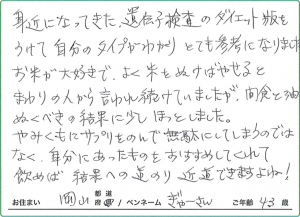 身近になってきた、遺伝子検査のダイエット版を
うけて自分のタイプがわかりとても参考になりました
お米が大好きで、よく米をぬけばやせると
まわりの人から言われ続けていましたが、間食と油
ぬくべきの結果に少しほっとしました。
やみくもにサプリをのんで無駄にしてしまうのでは
なく、自分にあったものをおすすめしてくれて
飲めば結果への道のり近道できますよね！
お住まい 岡山 都道府県 / ペンネーム ぎゅーさん ご年齢 43 歳